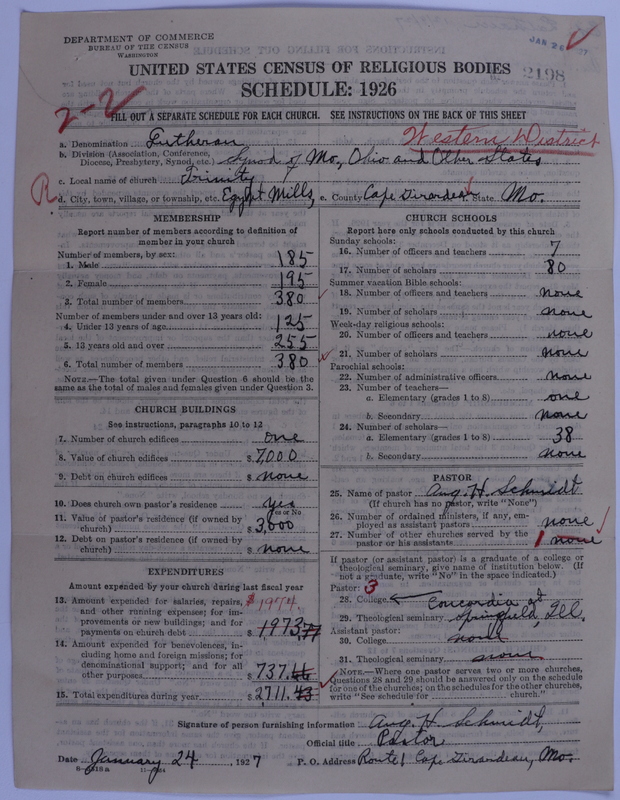 DEPARTMENT OF COMMERCE
BUREAU OF THE CENSUS
WASHINGTON
JAN 26
2198
UNITED STATES CENSUS OF RELIGIOUS BODIES
SCHEDULE: 1926
2-2
FILL OUT A SEPARATE SCHEDULE FOR EACH CHURCH. SEE INSTRUCTIONS ON THE BACK OF THIS SHEET
Western District
a. Denomination Lutheran
b. Division (Association, Conference, Diocese, Presbytery, Synod, etc.) Synod of Mo, Ohio and Other States
c. Local name of church Trinity
R d. City, town, village, or township, etc. Egypt Mills, e. County Cape Girardeau f. State Mo.
MEMBERSHIP
Report number of members according to definition of
member in your church
Number of members, by sex:
1. Male 185
2. Female 195
3. Total number of members 380
Number of members under and over 13 years old:
4. Under 13 years of age 125
5. 13 years old and over 255
6. Total number of members 380
NOTE.—The total given under Question 6 should be the
same as the total of males and females given under Question 3.
CHURCH BUILDINGS
See instructions, paragraphs 10 to 12
7. Number of church edifices one
8. Value of church edifices $ 7,000
9. Debt on church edifices $ none
10. Does church own pastor's residence yes
Yes or No
11. Value of pastor's residence (if owned by
church) $ 3,000
12. Debt on pastor's residence (if owned by
church) $ none
EXPENDITURES
Amount expended by your church during last fiscal year
13. Amount expended for salaries, repairs, $ 1974
and other running expenses; for im-
provements or new buildings; and for
payments on church debt $ 1973.77
14. Amount expended for benevolences, in-
cluding home and foreign missions; for
denominational support; and for all
other purposes $ 737.66
15. Total expenditures during year $ 2711.43
CHURCH SCHOOLS
Report here only schools conducted by this church
Sunday schools:
16. Number of officers and teachers 7
17. Number of scholars 80
Summer vacation Bible schools:
18. Number of officers and teachers none
19. Number of scholars none
Week-day religious schools:
20. Number of officers and teachers none
21. Number of scholars none
Parochial schools:
22. Number of administrative officers none
23. Number of teachers—
a. Elementary (grades 1 to 8) one
b. Secondary none
24. Number of scholars—
a. Elementary (grades 1 to 8) 38
b. Secondary none
PASTOR
25. Name of pastor Aug. H. Schmidt
(If church has no pastor, write "None")
26. Number of ordained ministers, if any, em-
ployed as assistant pastors none
27. Number of other churches served by the
pastor or his assistants 1 none
If pastor (or assistant pastor) is a graduate of a college or
theological seminary, give name of institution below. (If
not a graduate, write "No" in the space indicated.)
Pastor: 3
28. College Concordia at
29. Theological seminary Springfield, Ill.
Assistant pastor:
30. College none
31. Theological seminary none
NOTE.—Where one pastor serves two or more churches,
Questions 28 and 29 should be answered only on the schedule
for one of the churches; on the schedules for the other churches,
write "See schedule for church."
Signature of person furnishing information Aug. H. Schmidt,
Official title Pastor
Date January 24, 1927 P. O. Address Route 1 Cape Girardeau, Mo.